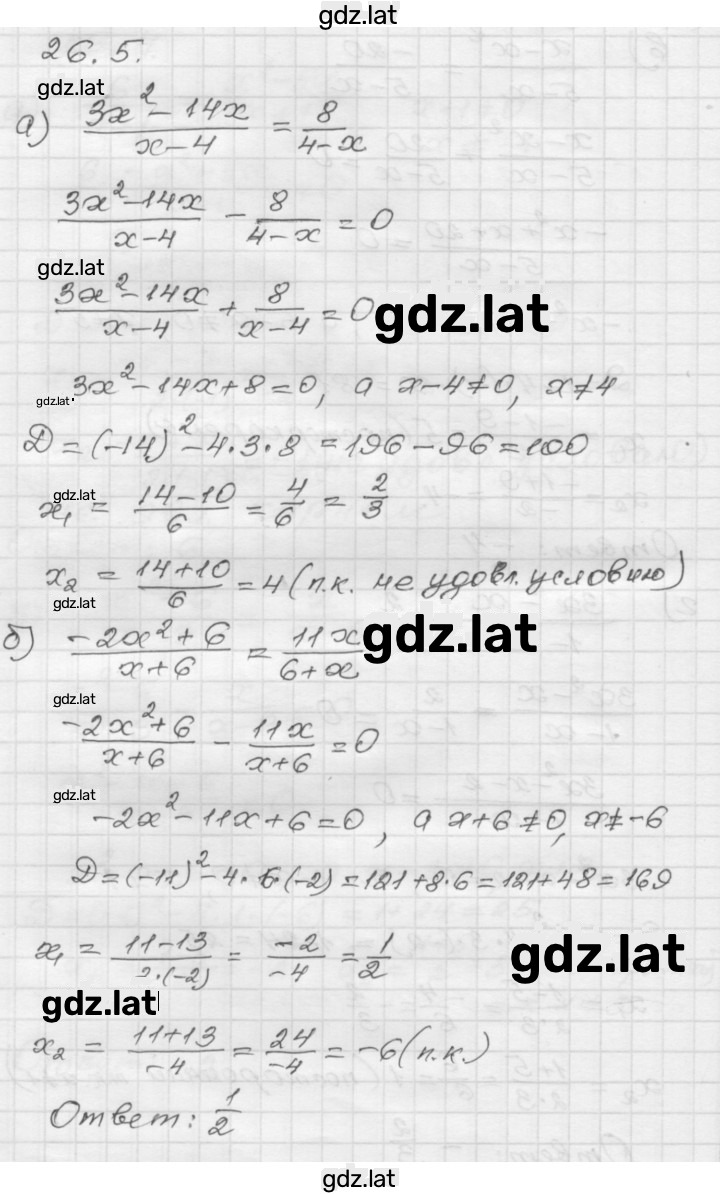 gdz.lat
26.5.
gdz.lat
а) (3x² - 14x)/(x - 4) = 8/(4 - x)
(3x² - 14x)/(x - 4) - 8/(4 - x) = 0
gdz.lat
(3x² - 14x)/(x - 4) + 8/(x - 4) = 0
gdz.lat
3x² - 14x + 8 = 0, а x - 4 ≠ 0, x ≠ 4
gdz.lat
D = (-14)² - 4·3·8 = 196 - 96 = 100
gdz.lat
x₁ = (14 - 10)/6 = 4/6 = 2/3
x₂ = (14 + 10)/6 = 4 (п.к. не удовл. условию)
gdz.lat
б) (-2x² + 6)/(x + 6) = 11x/(6 + x)
gdz.lat
gdz.lat
(-2x² + 6)/(x + 6) - 11x/(x + 6) = 0
gdz.lat
-2x² - 11x + 6 = 0, а x + 6 ≠ 0, x ≠ -6
D = (-11)² - 4·6·(-2) = 121 + 8·6 = 121 + 48 = 169
x₁ = (11 - 13)/(2·(-2)) = -2/-4 = 1/2
gdz.lat
gdz.lat
x₂ = (11 + 13)/-4 = 24/-4 = -6 (п.к.)
Ответ: 1/2
gdz.lat